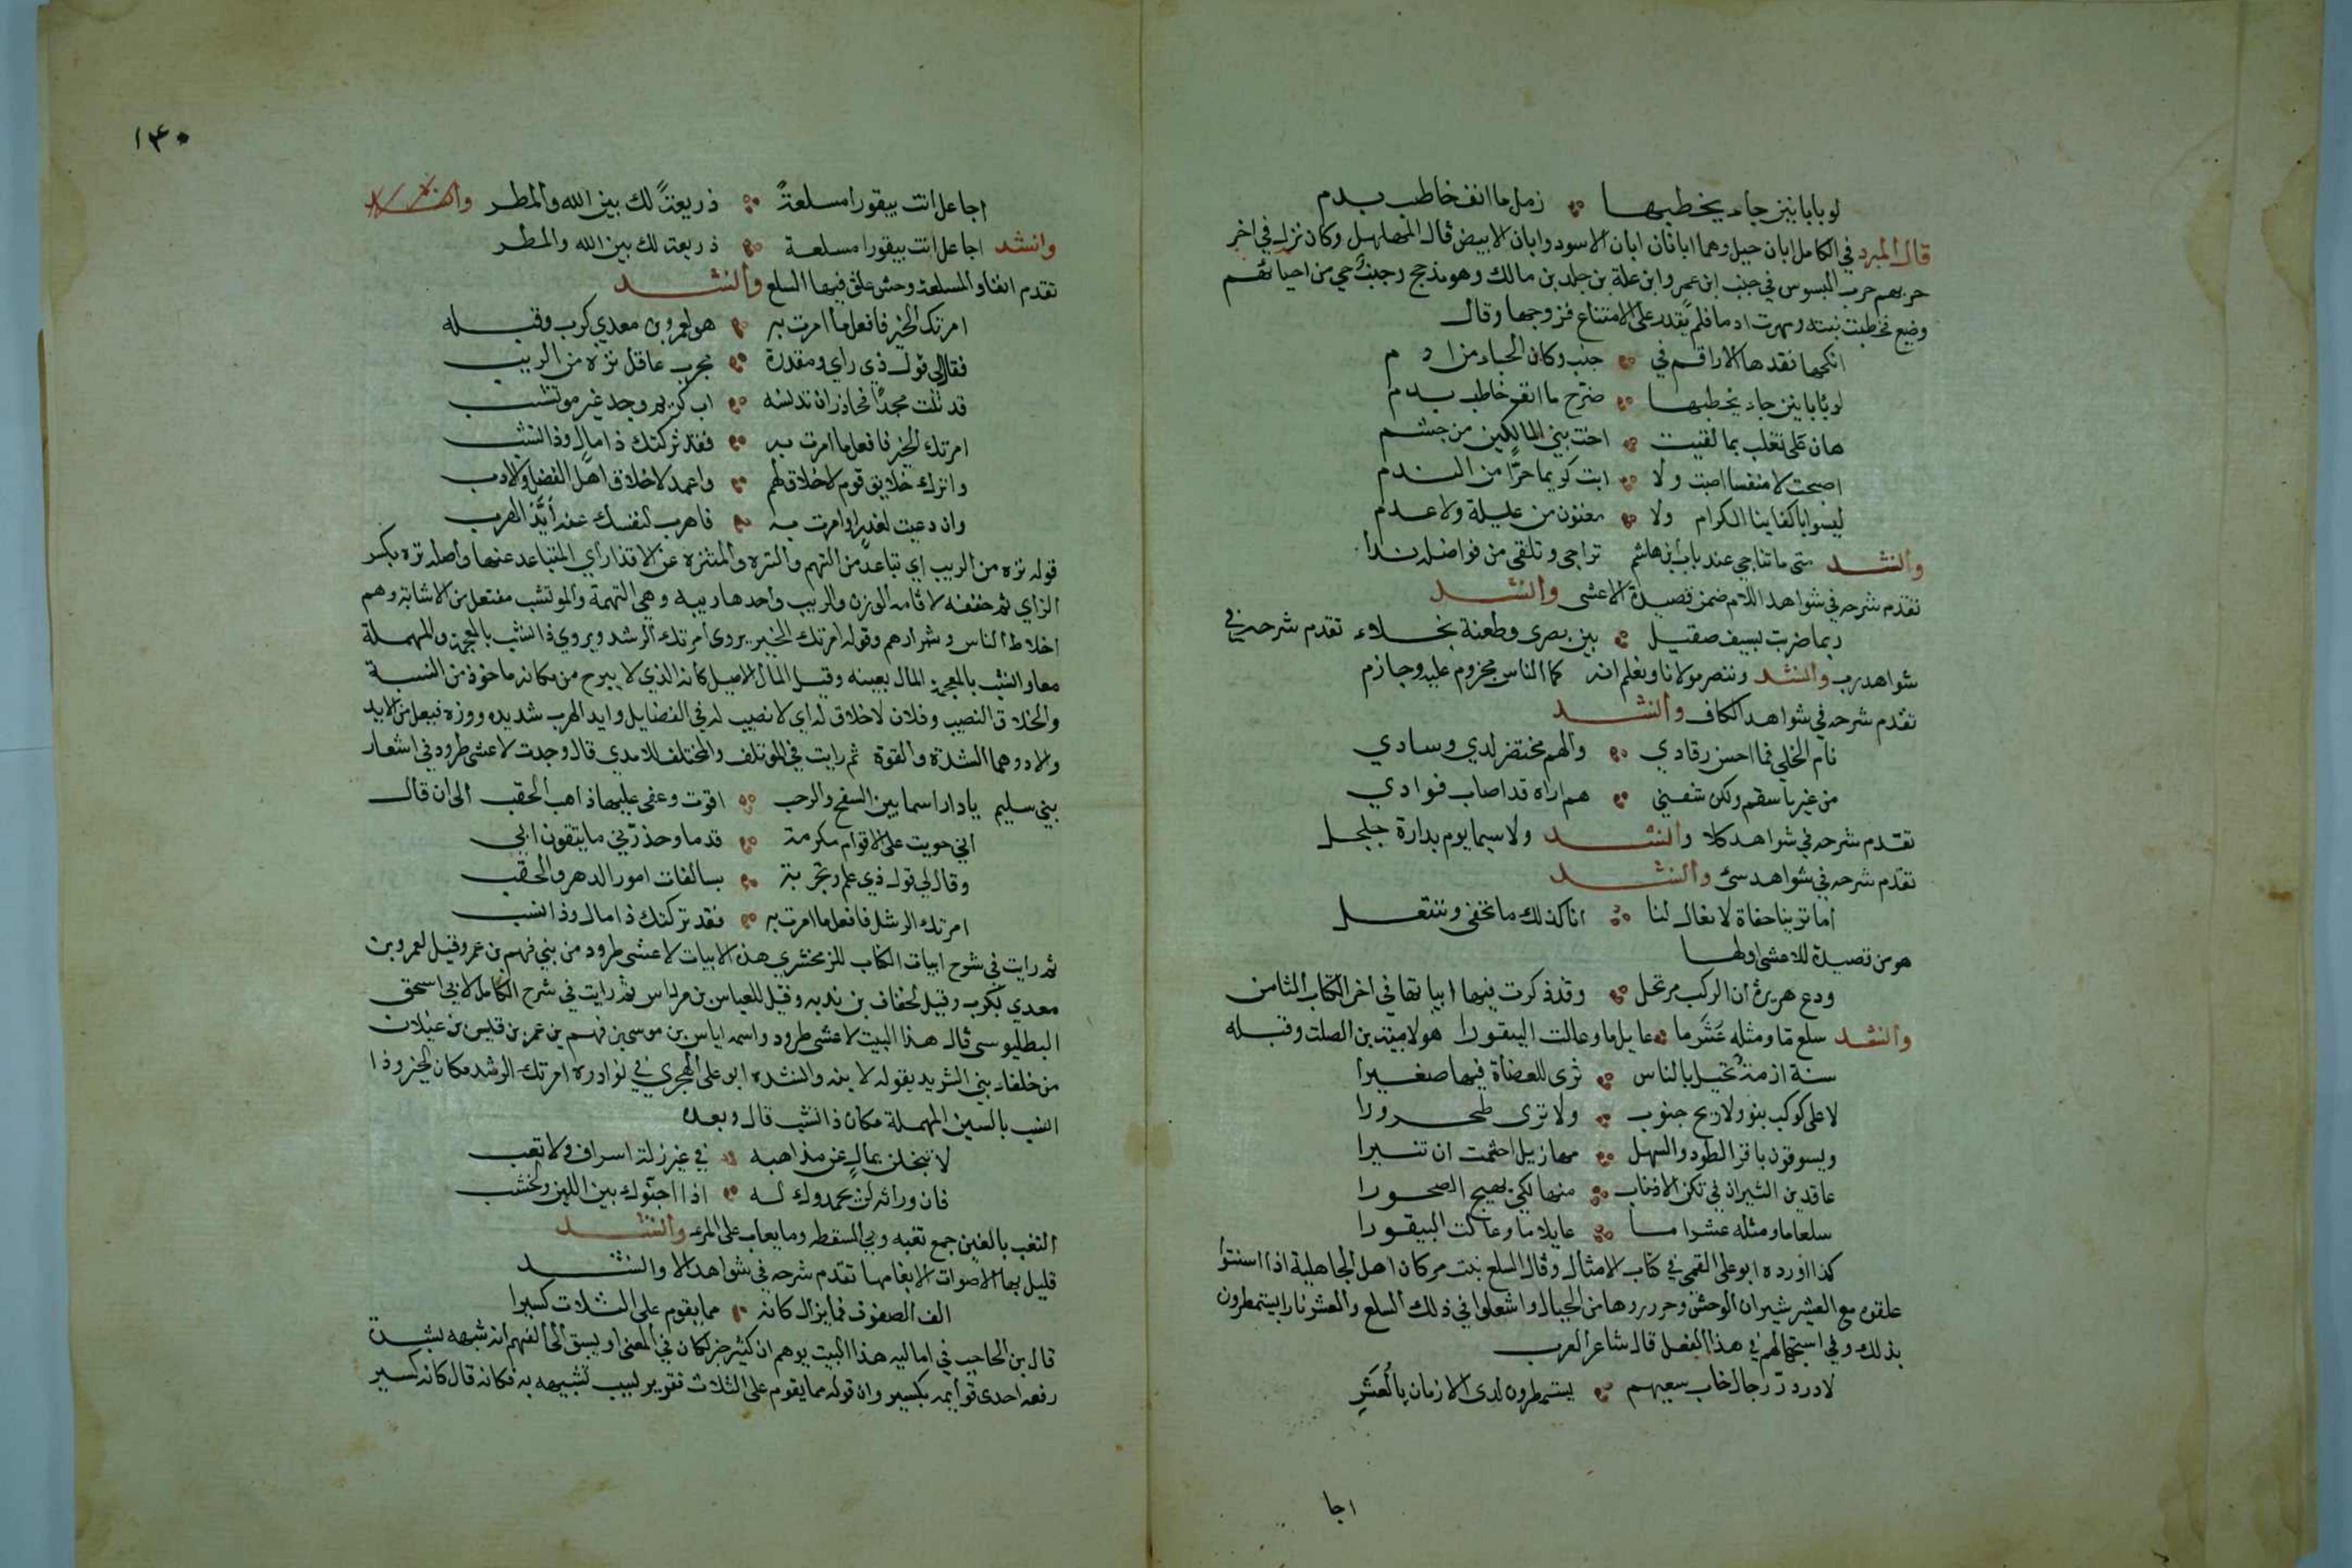 لو بابانين جاء يخطبها ؞ زمل ما انف خاطب بدم
قال المبرد في الكامل ابان جبل وهما ابانان ابان الاسود وابان الابيض قال المهلهل وكان نزل في اخر
حربهم حرب البسوس في جنب ابن عمرو ابن علة بن جلد بن مالك وهو مذحج وجنب حي من احيائهم
وضيع فخطبت بنته ومهرت ادما فلم يقدر على الامتناع فزوجها وقال
انكحها فقدها الاراقم في ؞ جنب وكان الحباء من ادم
لو بابانين جاء يخطبها ؞ ضرج ما انف خاطب بدم
هان على تغلب بما لقيت ؞ اخت بني المالكين من جشم
اصبحت لا منفسا اصبت ولا ؞ ابت كريما حرا من الندم
ليسوا باكفاينا الكرام ولا ؞ يغنون من عيلة ولا عدم
وانشد متى ما تناجي عند باب ابن هاشم تراحي وتلقى من فواضله ندا
تقدم شرحه في شواهد اللام ضمن قصيدة الاعشى وانشد
ربما ضربت بسيف صقيل ؞ بين بصرى وطعنة نجلاء تقدم شرحه في
شواهد رب وانشد وننصر مولانا ونعلم انه كما الناس مجزوم عليه وجازم
تقدم شرحه في شواهد الكاف وانشد
نام الخلي فما احسن رقادي ؞ والهم محتضر لدي وسادي
من غير ما سقم ولكن شفني ؞ هم اراه قد اصاب فوادي
تقدم شرحه في شواهد كلا وانشد ولا سيما يوم بدارة جلجل
تقدم شرحه في شواهد سئ وانشد
اما ترينا حفاة لا نعال لنا ؞ انا كذلك ما نحفى وننتعل
هو من قصيدة للاعشى اولها
ودع هريرة ان الركب مرتحل ؞ وقد ذكرت فيها ابياتها في اخر الكتاب الثامن
وانشد سلع ما ومثله عشر ما ؞ عايل ما وعالت البيقورا هو لامية بن الصلت وقبله
سنة ازمة تخيل بالناس ؞ ترى للعضاة فيها صغيرا
لا على كوكب بنوء ولا ريح جنوب ؞ ولا ترى طحرورا
ويسوقون باقر الطود والسهل ؞ مهازيل خشية ان تنيرا
عاقدين النيران في ثكن الاذناب ؞ منها لكي يهيج الصحورا
سلعا ما ومثله عشرا ما ؞ عايلا ما وعالت البيقورا
كذا اورده ابو على القمى في كتاب الامثال وقال السلع نبت مر كان اهل الجاهلية اذا اسنتوا
علقوه مع العشر بثيران الوحش وحدروها من الجبال واشعلوا في ذلك السلع والعشر نارا يستمطرون
بذلك وفي استجهالهم في هذا الفعل قال شاعر العرب
لا در در رجال خاب سعيهم ؞ يستمطرون لدى الازمان بالعشر
اجا
١٤٠
اجاعل انت بيقورا مسلعة ؞ ذريعة لك بين الله والمطر
وانشد اجاعل انت بيقورا مسلعة ؞ ذريعة لك بين الله والمطر
تقدم انفا والمسلعة وحش علق فيها السلع وانشد
امرتك الخير فافعل ما امرت به ؞ هو لعمرو بن معدي كرب وقبله
فقال لي قول ذي راي ومقدرة ؞ مجرب عاقل نزه من الريب
قد نلت مجدا فحاذر ان تدنسه ؞ اب كريم وجد غير موتشب
امرتك الخير فافعل ما امرت به ؞ فقد تركتك ذا مال وذا نشب
واترك خلايق قوم لاخلاق لهم ؞ واعمد لاخلاق اهل الفضل والادب
وان دعيت لغدر او امرت به ؞ فاهرب لنفسك عنه ايد الهرب
قوله نزه من الريب اي تباعد من التهم والنزه والمتنزه عن الاقذار اي المتباعد عنها واصله نزه بكسر
الزاي ثم خففه لاقامه الوزن والريب واحدها ريبه وهي التهمة والموتشب مفتعل من الاشابة وهم
اخلاط الناس وشرارهم وقوله امرتك الخير يروى امرتك الرشد ويروي ذا نشب بالمعجمة والمهملة
معا والنشب بالمعجمة المال بعينه وقيل المال الاصيل كانه الذي لا يبرح من مكانه ماخوذ من النسبة
والخلاق النصيب وفلان لاخلاق له اي لا نصيب له في الفضايل وايد الهرب شديده ووزنه فيعل من الايد
والاد وهما الشدة والقوة ثم رايت في الموتلف والمختلف للامدي قال وجدت لاعشى طرود في اشعار
بني سليم يا دار اسما بين السفح والرحب ؞ اقوت وعفى عليها ذاهب الحقب الى ان قال
اني حويت على الاقوام مكرمة ؞ قدما وحذرني ما يتقون ابي
وقال لي قول ذي علم وتجربة ؞ بسالفات امور الدهر والحقب
امرتك الرشد فافعل ما امرت به ؞ فقد تركتك ذا مال وذا نسب
ثم رايت في شرح ابيات الكتاب للزمخشري هذه الابيات لاعشى طرود من بني فهم بن عمر وقيل لعمرو بن
معدي يكرب وقيل لخفاف بن ندبه وقيل للعباس بن مرداس ثم رايت في شرح الكامل لابي اسحق
البطليوسى قال هذا البيت لاعشى طرود واسمه اياس بن موسى بن فهم بن عمر بن قيس بن عيلان
من حلفاء بني الشريد يقوله لابنه وانشده ابو على الهجري في نوادره امرتك الرشد مكان الخير وذا
النسب بالسين المهملة مكان ذا نشب قال وبعده
لا تبخلن بمال عن مذاهبه ؞ في غير زلة اسراف ولا تغب
فان وراثه لن يحمدوك له ؞ اذا اجنوك بين اللبن والخشب
التغب بالغين جمع تغبه وهي السقطه وما يعاب على المرء وانشد
قليل بها الاصوات الا بغامها تقدم شرحه في شواهد الا وانشد
الف الصفون فما يزال كانه ؞ مما يقوم على الثلاث كسيرا
قال بن الحاجب في اماليه هذا البيت يوهم ان كثيرا خبر لكان في المعنى او يسبق الى الفهم انه شبهه بشدة
رفعه احدى قوايمه بكسير وان قوله مما يقوم على الثلاث تقوير لسبب تشبيهه به فكانه قال كانه كسير